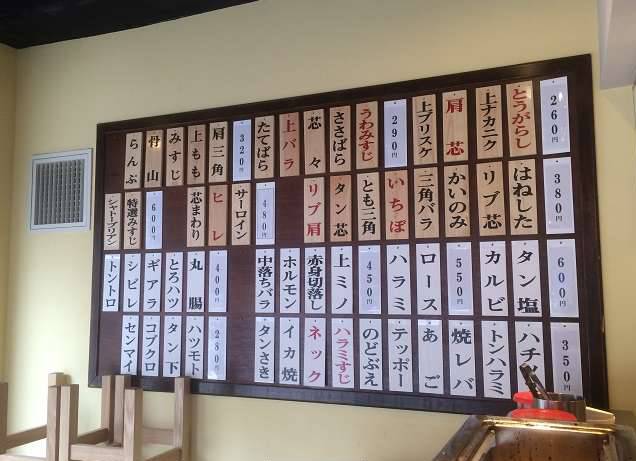 260円
とうがらし
上ナカニク
肩芯
上ブリスケ
290円
うわみすじ
ささばら
芯々
上バラ
たてばら
320円
肩三角
上もも
みすじ
骨山
らんぷ
380円
はねした
リブ芯
かいのみ
三角バラ
いちぼ
とも三角
タン芯
リブ肩
480円
サーロイン
ヒレ
芯まわり
600円
特選みすじ
シャトーブリアン
600円
タン塩
カルビ
550円
ロース
ハラミ
450円
上ミノ
赤身切落し
ホルモン
中落ちバラ
400円
丸腸
とろハツ
ギアラ
シビレ
トントロ
350円
ハチノ
トンハラミ
焼レバ
あご
テッポー
のどぶえ
ハラミすじ
ネック
イカ焼
タンさき
280円
ハツモト
タン下
コブクロ
センマイ